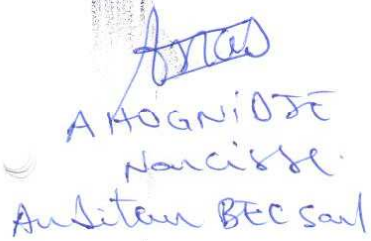 AHOGNIDJE
Narcisse.
Auditeur BEC sarl